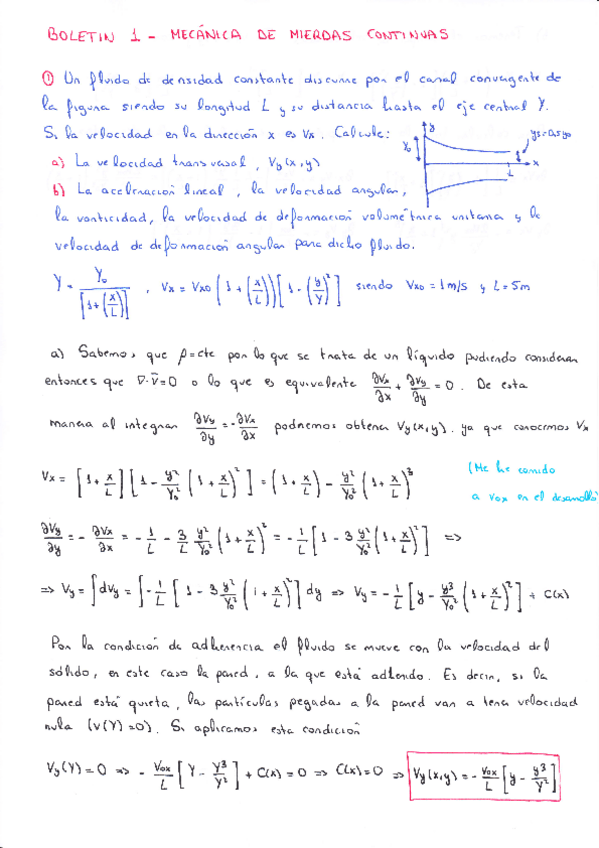 BOLETIN 1 - MECÁNICA DE MIERDAS CONTINUAS
① Un fluido de densidad constante discurre por el canal convergente de
la figura siendo su longitud L y su distancia hasta el eje central Y.
Si la velocidad en la dirección x es Vx. Calcule:
a) La velocidad transversal, Vy(x,y)
b) La aceleración lineal, la velocidad angular,
la vorticidad, la velocidad de deformación volumétrica unitaria y la
velocidad de deformación angular para dicho fluido.
y
Y₀
ys=0,5y₀
x
L
Y = Y₀/[1+(x/L)] , Vx = Vx0 (1+(x/L))[1-(y/Y)²] siendo Vx0 = 1m/s y L=5m
a) Sabemos que ρ=cte por lo que se trata de un líquido pudiendo considerar
entonces que ∇·v̄=0 o lo que es equivalente ∂Vx/∂x + ∂Vy/∂y = 0. De esta
manera al integrar ∂Vy/∂y = -∂Vx/∂x podremos obtener Vy(x,y). ya que conocemos Vx
Vx = [1+x/L][1-y²/Y₀²(1+x/L)²] = (1+x/L) - y²/Y₀²(1+x/L)³
(Me he comido
a vox en el desarrollo)
∂Vy/∂y = -∂Vx/∂x = -1/L - 3/L y²/Y₀²(1+x/L)² = -1/L[1-3y²/Y₀²(1+x/L)²] =>
=> Vy = ∫dVy = ∫-1/L[1-3y²/Y₀²(1+x/L)²]dy => Vy = -1/L[y-y³/Y₀²(1+x/L)²] + C(x)
Por la condición de adherencia el fluido se mueve con la velocidad del
sólido, en este caso la pared, a la que está adherido. Es decir, si la
pared está quieta, las partículas pegadas a la pared van a tener velocidad
nula (v(Y)=0). Si aplicamos esta condición
Vy(Y)=0 => -Vox/L[Y-Y³/Y²]+C(x)=0 => C(x)=0 => Vy(x,y)=-Vox/L[y-y³/Y²]